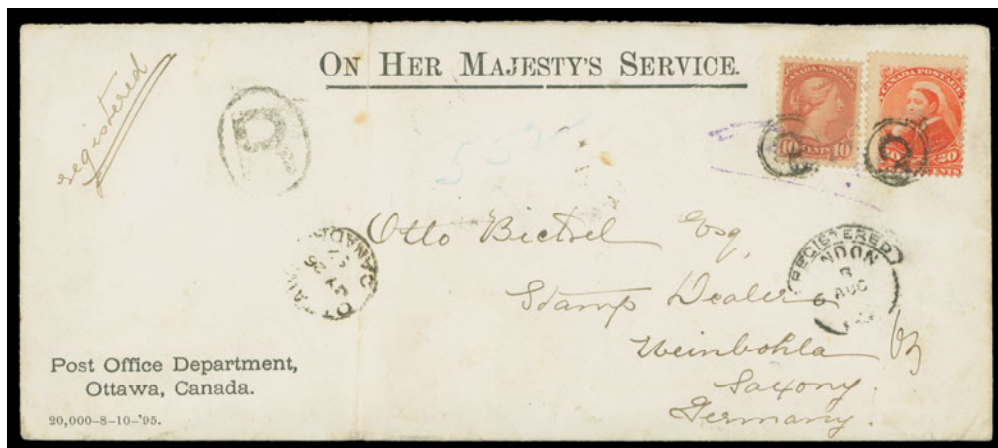 ON HER MAJESTY'S SERVICE.
registered
R
CANADA POSTAGE
10 CENTS 10
CANADA POSTAGE
20
CENTS
R
552
Otto Bietrel Esq,
Stamp Dealer
Weinbohla
Saxony.
Germany.
CANADA
REGISTERED
LONDON
6 AUG
Post Office Department,
Ottawa, Canada.
20,000–8–10–'95.